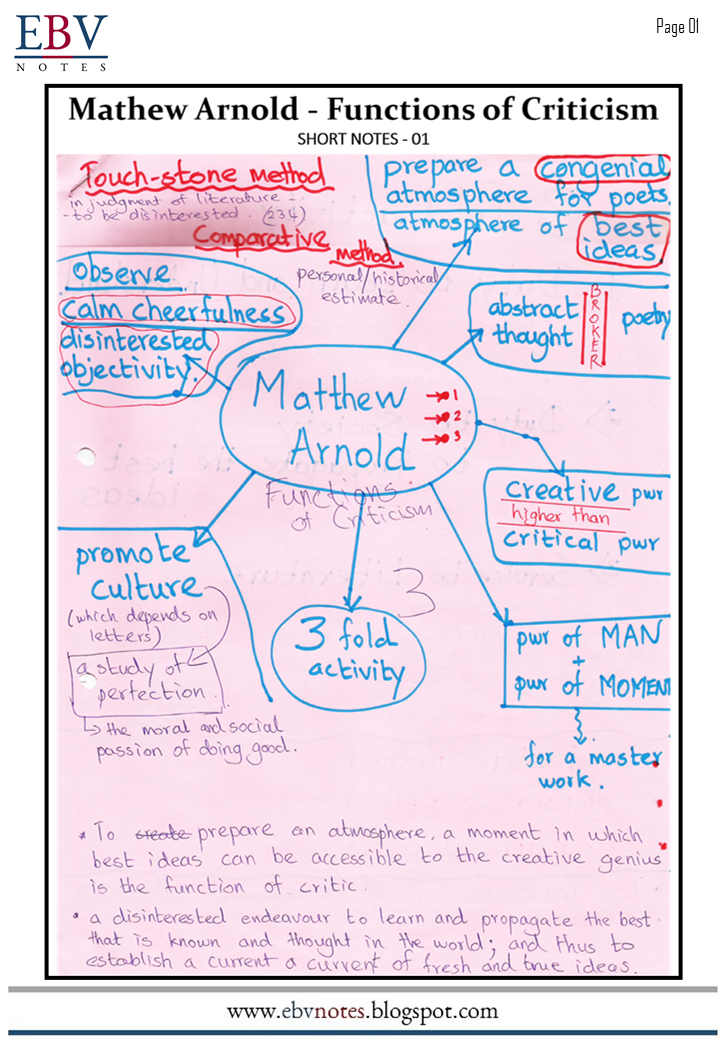 EBV
NOTES
Page 01
Mathew Arnold - Functions of Criticism
SHORT NOTES - 01
Touch-stone method
in judgment of literature -
- to be disinterested. (234)
Comparative
method.
personal/historical
estimate.
prepare a congenial
atmosphere for poets.
atmosphere of best
ideas.
observe
calm cheerfulness
disinterested
objectivity.
abstract
thought
BROKER
poetry
Matthew
Arnold
1
2
3
Functions
of Criticism
creative pwr
higher than
critical pwr
promote
culture
(which depends on
letters)
a study of
perfection.
the moral and social
passion of doing good.
3
3 fold
activity
pwr of MAN
+
pwr of MOMEN
for a master
work.
* To create prepare an atmosphere, a moment in which
best ideas can be accessible to the creative genius
is the function of critic.
• a disinterested endeavour to learn and propagate the best
that is known and thought in the world; and thus to
establish a current a current of fresh and true ideas.
www.ebvnotes.blogspot.com